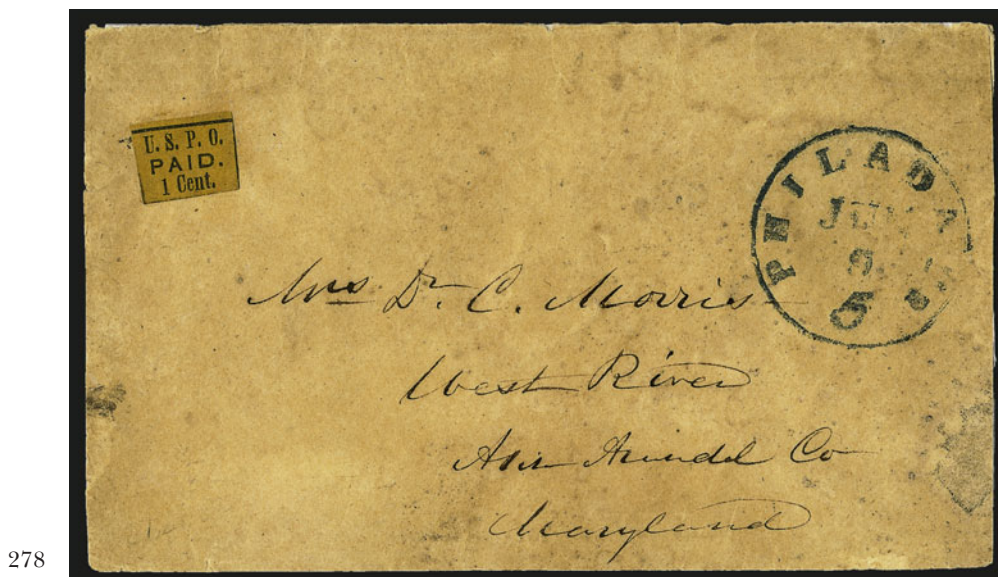 U. S. P. O.
PAID.
1 Cent.
PHILADA Pa
5
Mrs Dr. C. Morris
West River
Ann Arundel Co
Maryland
278